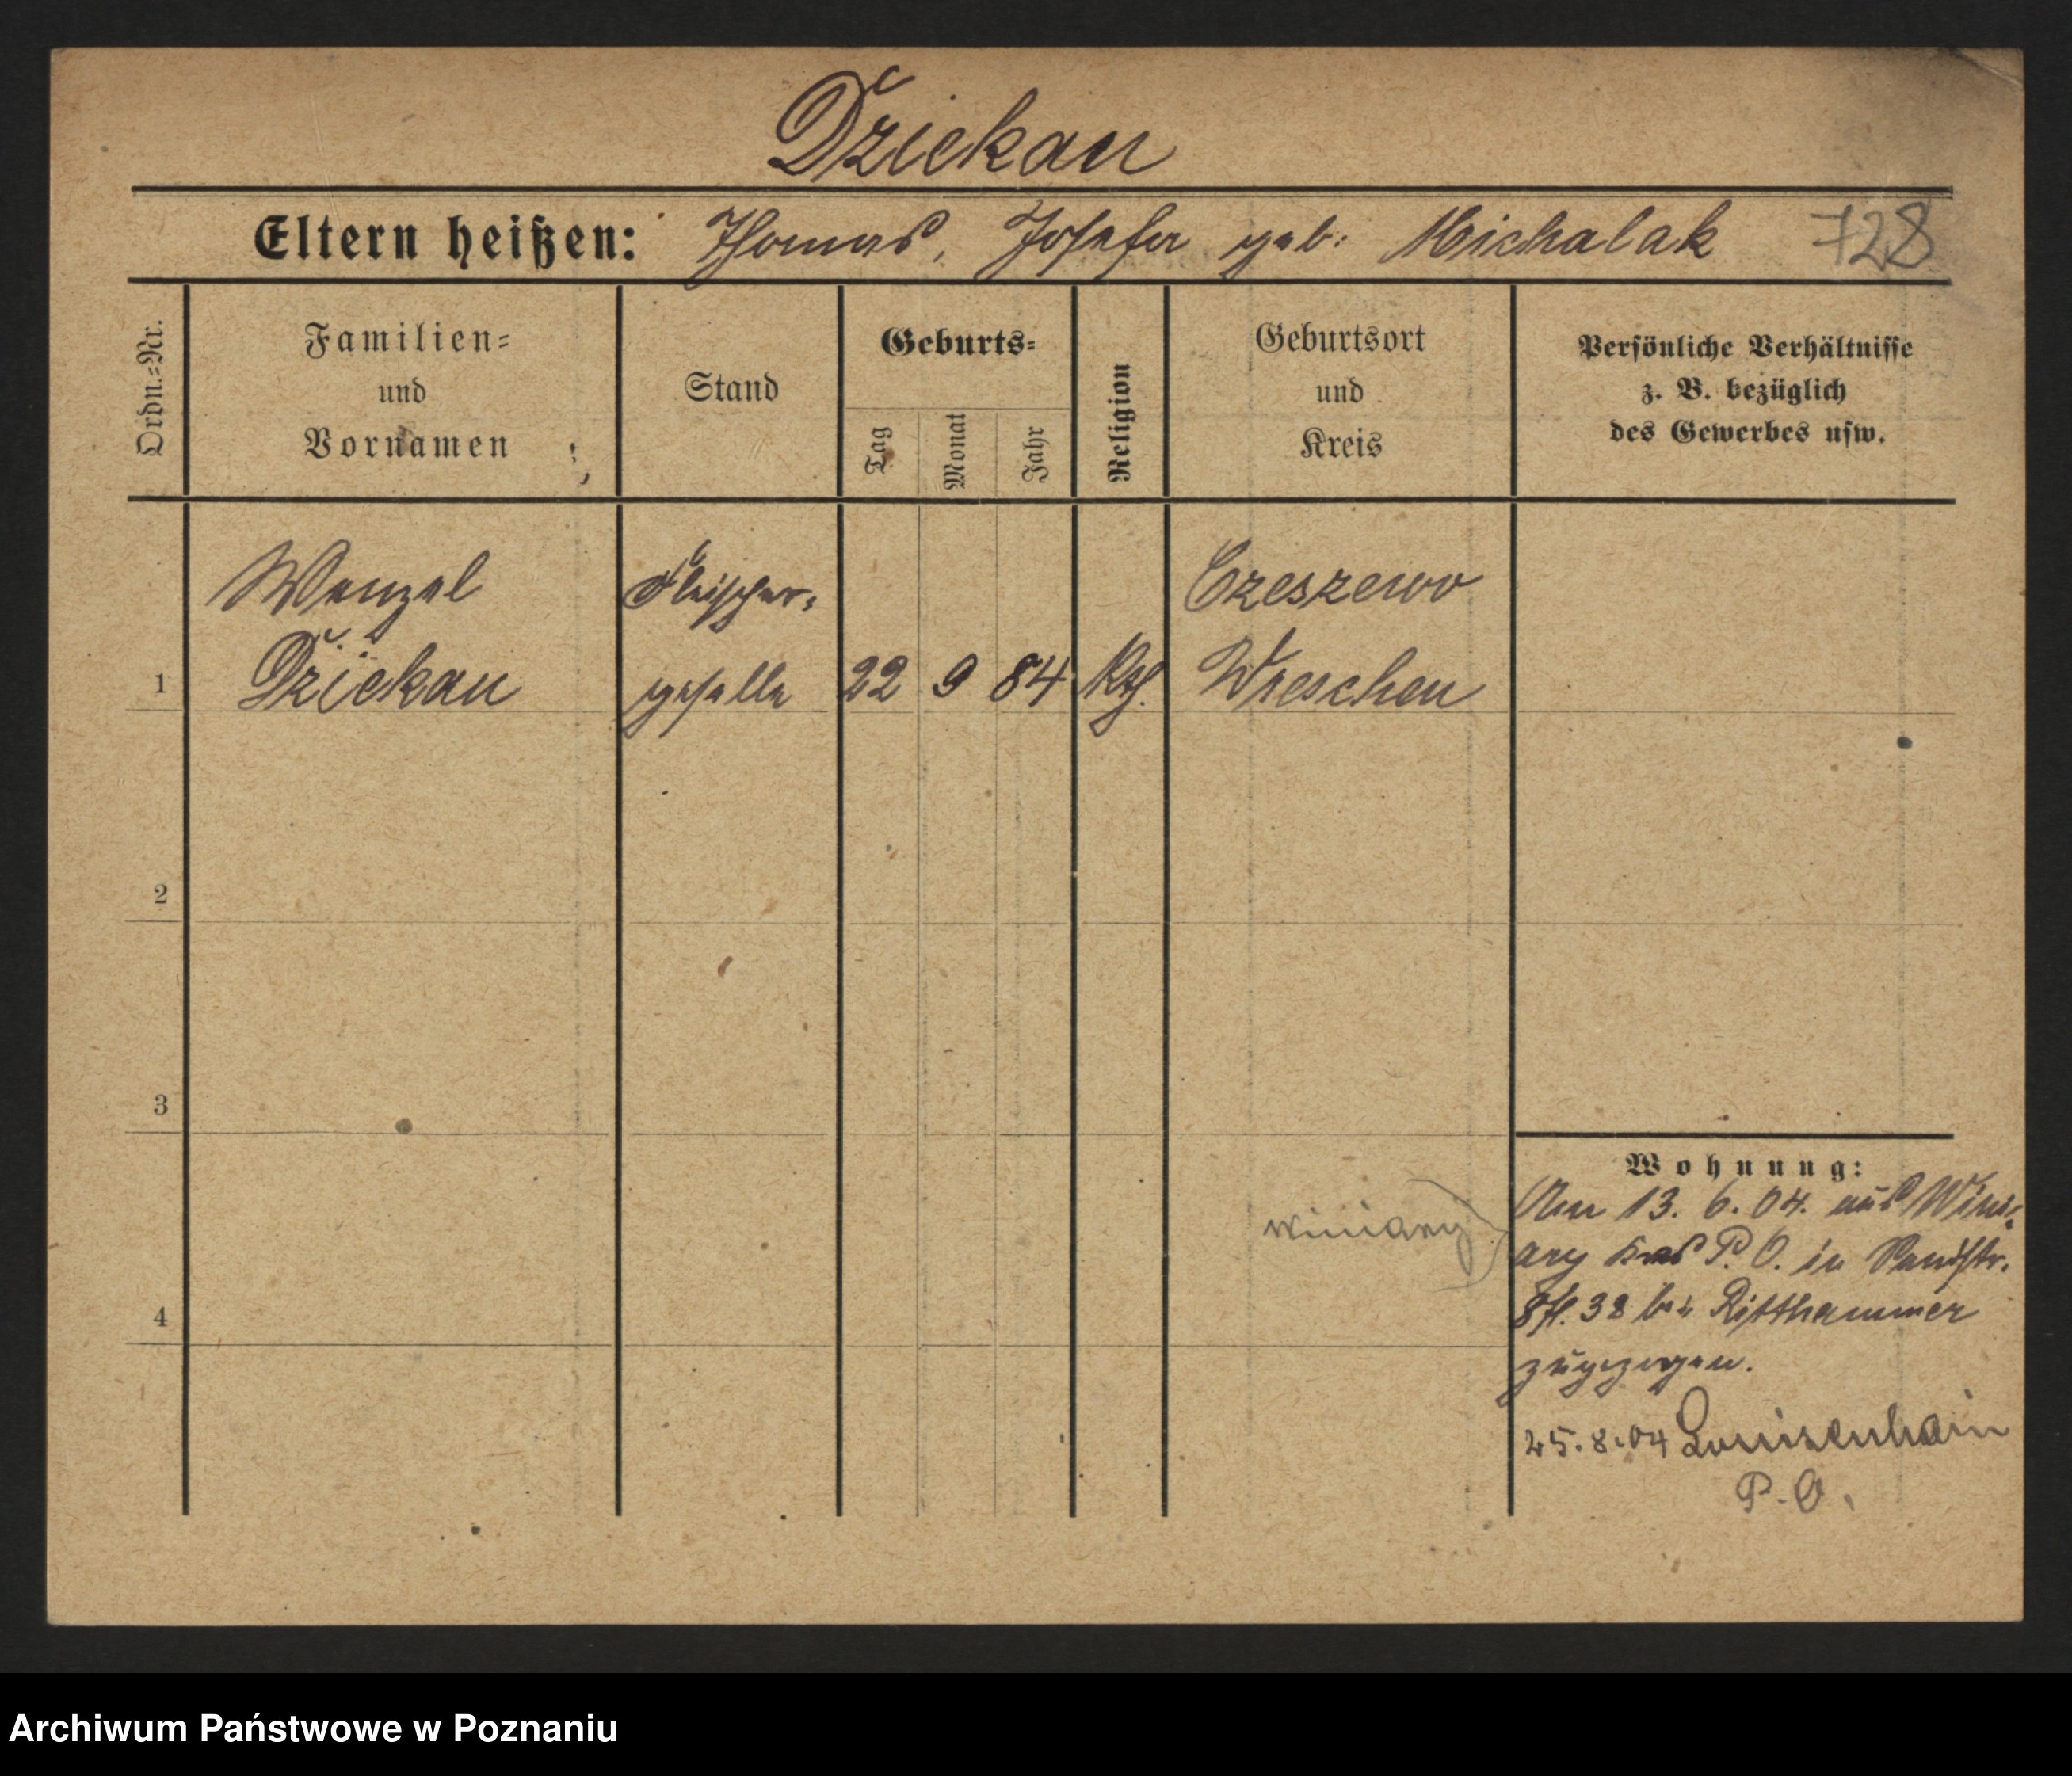 Dziekan
Eltern heißen: Thomas, Josefa geb: Michalak 728
Ordn.=Nr.
Familien=
und
Vornamen
Stand
Geburts=
Tag
Monat
Jahr
Religion
Geburtsort
und
Kreis
Persönliche Verhältnisse
z. B. bezüglich
des Gewerbes usw.
Wenzel Fleischer- Czeszewo
1 Dziekan geselle 22 9 84 Kth. Wreschen
2
3
4
Wohnung:
winiary
Am 13. 6. 04. aus Wini-
ary P. O. in
38 bei Ritthammer
zugezogen.
25.8.04 Louisenhain
P. O.
Archiwum Państwowe w Poznaniu